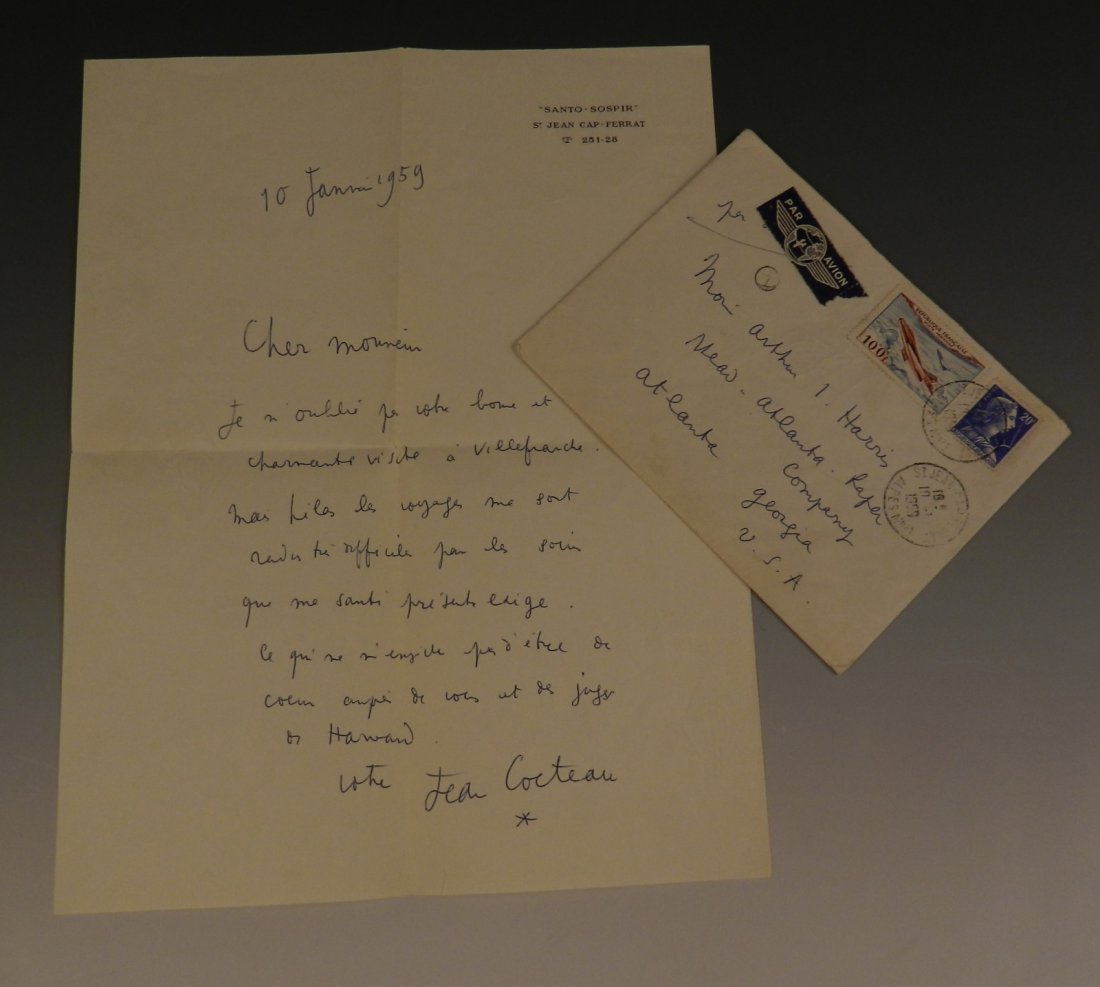 "SANTO-SOSPIR"
ST JEAN CAP-FERRAT
☏ 251-28
10 Janvier 1959
Cher monsieur
Je n'oublie pas votre bonne et
charmante visite à Villefranche.
Mais hélas les voyages me sont
rendus très difficiles par les soins
que ma santé présente exige.
Ce qui ne m'empêche pas d'être de
coeur auprès de vous et des
de Harward.
votre Jean Cocteau
*
par
PAR AVION
Arthur I. Harris
Mead-Atlanta Paper
Company
Atlanta
Georgia
U.S.A.
REPUBLIQUE FRANÇAISE
100F
20F
ST JEAN
10-1
1959
ALPES